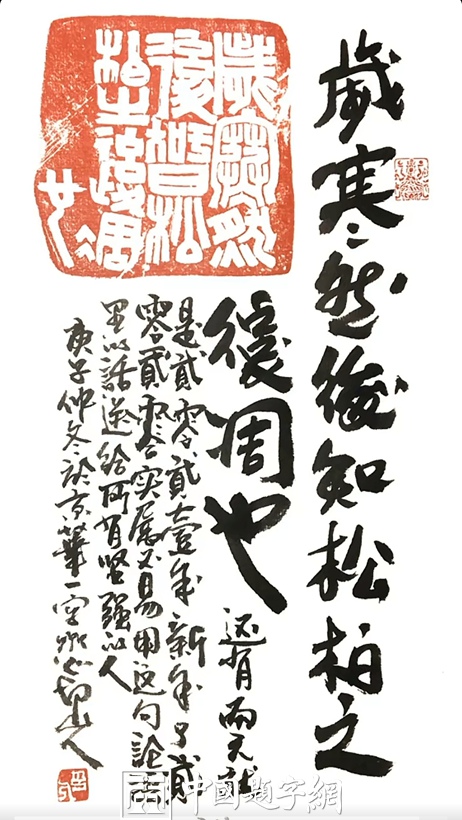 歲寒然後知松柏之
後周也 还有两天就
是貳零貳壹年新年了貳
零貳零实属不易用这句論語
里的話送给所有坚强的人
庚子仲冬於京華一空
山人
歲寒然
後智松
柏之後周
也
中國題字網